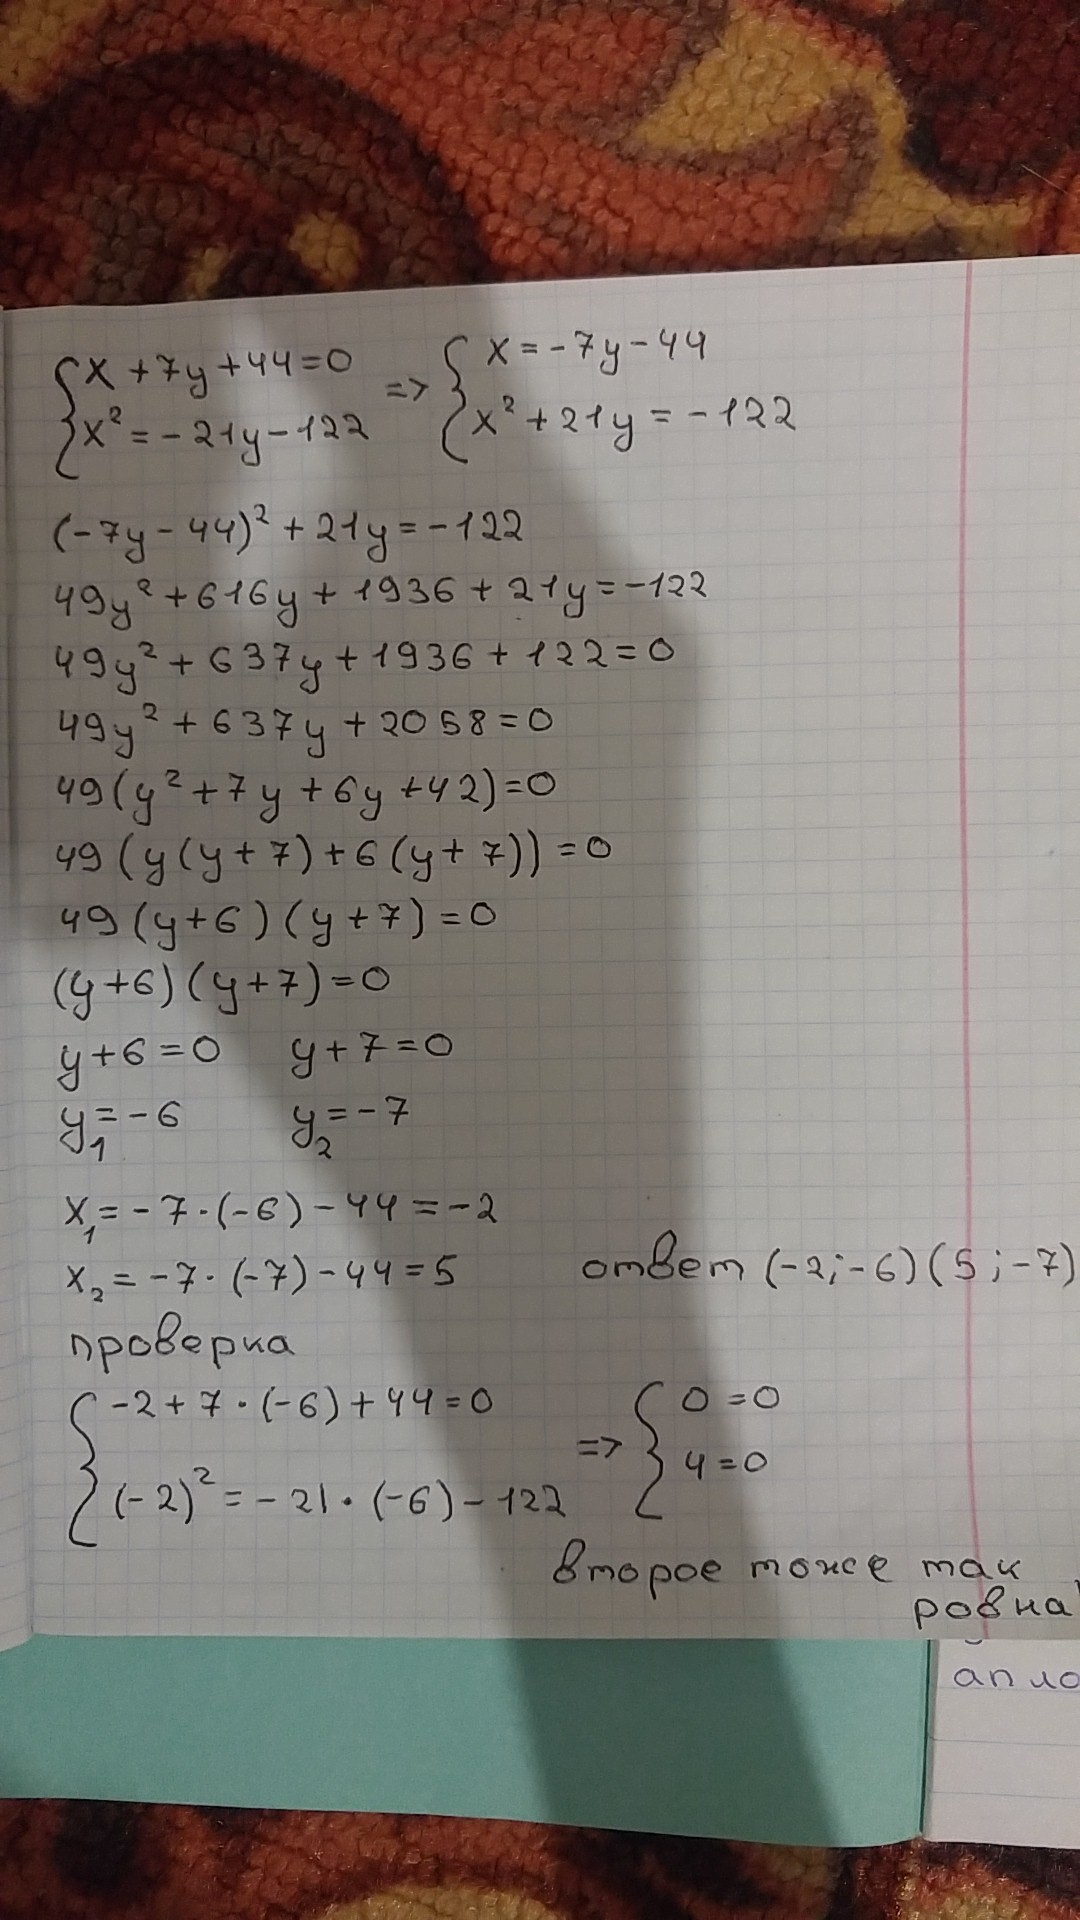 {x+7y+44=0 => {x=-7y-44
{x²=-21y-122 {x²+21y=-122
(-7y-44)²+21y=-122
49y²+616y+1936+21y=-122
49y²+637y+1936+122=0
49y²+637y+2058=0
49(y²+7y+6y+42)=0
49(y(y+7)+6(y+7))=0
49(y+6)(y+7)=0
(y+6)(y+7)=0
y+6=0 y+7=0
y₁=-6 y₂=-7
x₁=-7·(-6)-44=-2
x₂=-7·(-7)-44=5 ответ (-2;-6)(5;-7)
проверка
{-2+7·(-6)+44=0 => {0=0
{(-2)²=-21·(-6)-122 {4=0
второе тоже так
ровна